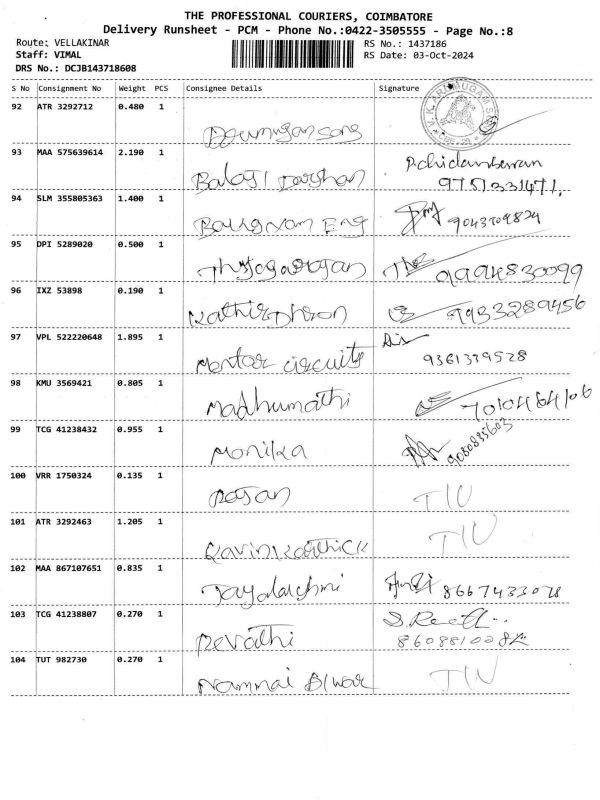 THE PROFESSIONAL COURIERS, COIMBATORE
Delivery Runsheet - PCM - Phone No.:0422-3505555 - Page No.:8
Route: VELLAKINAR RS No.: 1437186
Staff: VIMAL RS Date: 03-Oct-2024
DRS No.: DCJB143718608
S No Consignment No Weight PCS Consignee Details Signature
92 ATR 3292712 0.480 1
93 MAA 575639614 2.190 1
Balaji Darshan
94 SLM 355805363 1.400 1
Eng 9043709824
95 DPI 5289020 0.500 1
Thyjogarajan 9994830099
96 IXZ 53898 0.190 1
9933289456
97 VPL 522220648 1.895 1
Mentor circuits 9361339528
98 KMU 3569421 0.805 1
Madhumathi
99 TCG 41238432 0.955 1
Monika 9080835603
100 VRR 1750324 0.135 1
Rajan
101 ATR 3292463 1.205 1
Kavinkarthick
102 MAA 867107651 0.835 1
Jayalakshmi 8667433078
103 TCG 41238807 0.270 1
Revathi
104 TUT 982730 0.270 1